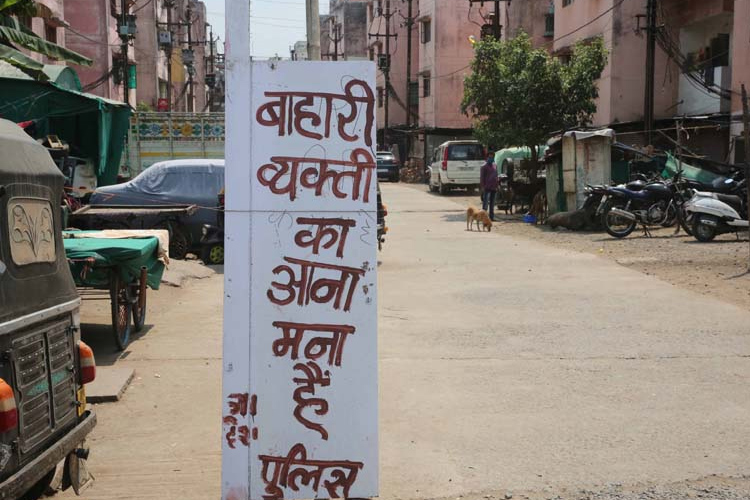 बाहारी
व्यक्ती
का
आना
मना
हैं
आ।
देश।
पुलिस